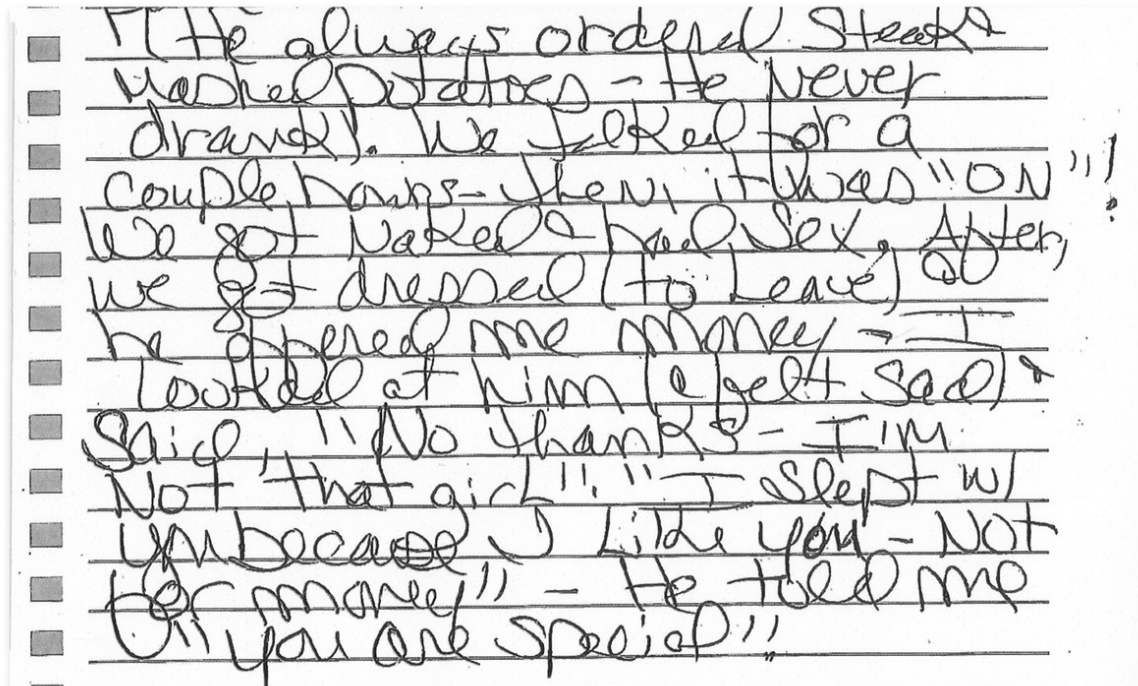 "(He always ordered Steak &
Mashed potatoes - He Never
drank). We talked for a
couple hours - then, it was "ON"!
We got Naked & had Sex. After,
we got dressed (to Leave)
he offered me money - I
Looked at him (& felt Sad) &
Said, "No thanks - I'm
Not that girl". "I slept w/
you because I Like you - NOT
for money" - He told me
"you are special"